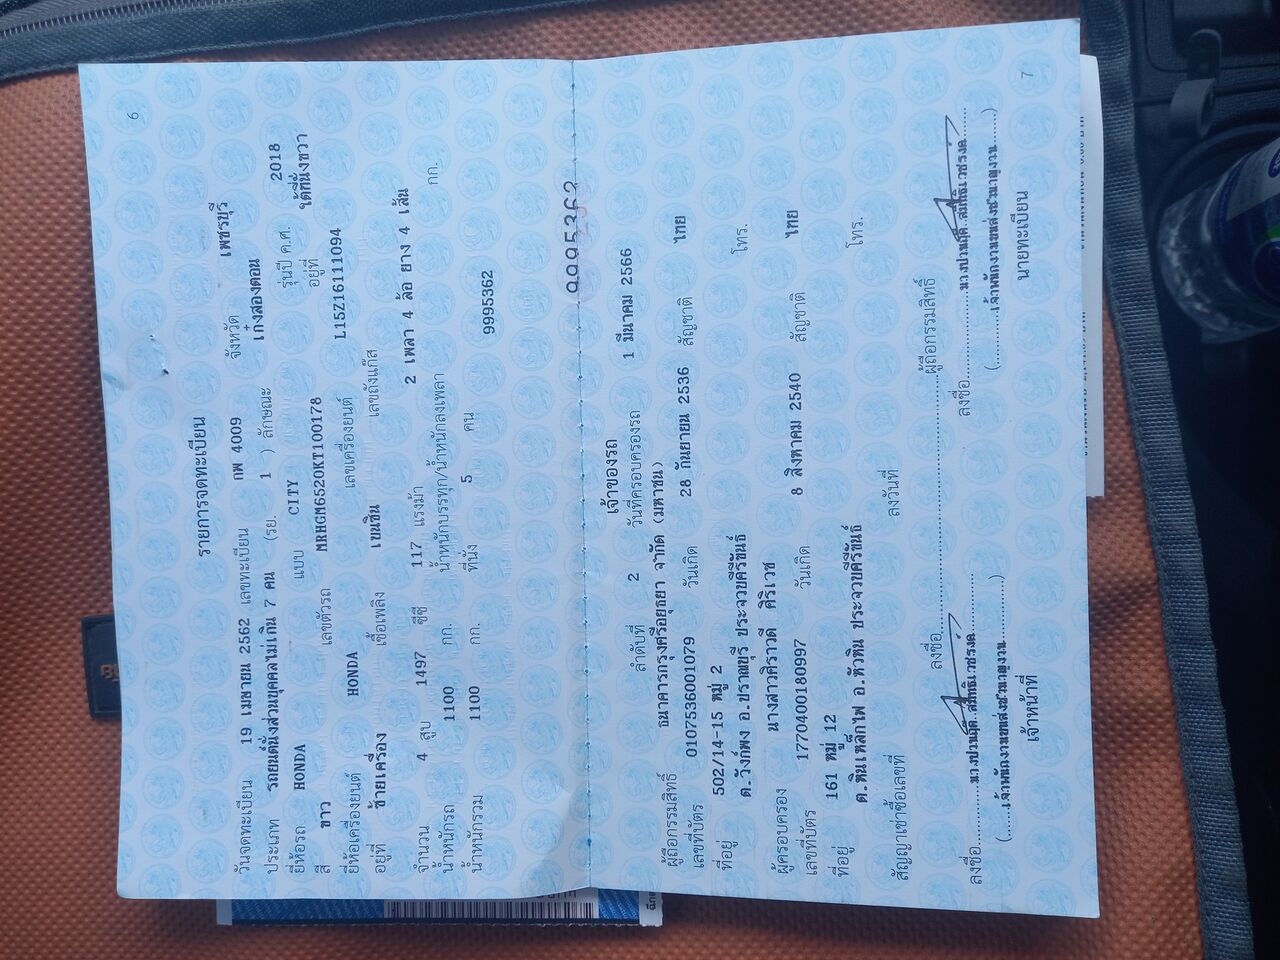 6
รายการจดทะเบียน
วันจดทะเบียน 19 เมษายน 2562 เลขทะเบียน กพ 4009 จังหวัด เพชรบุรี
ประเภท รถยนต์นั่งส่วนบุคคลไม่เกิน 7 คน (รย. 1 ) ลักษณะ เก๋งสองตอน
ยี่ห้อรถ HONDA แบบ CITY รุ่นปี ค.ศ. 2018
สี ขาว เลขตัวรถ MRHGM6520KT100178 อยู่ที่ ใต้ที่นั่งขวา
ยี่ห้อเครื่องยนต์ HONDA เลขเครื่องยนต์ L15Z16111094
อยู่ที่ ซ้ายเครื่อง เชื้อเพลิง เบนซิน เลขถังแก๊ส
จำนวน 4 สูบ 1497 ซีซี 117 แรงม้า 2 เพลา 4 ล้อ ยาง 4 เส้น
น้ำหนักรถ 1100 กก. น้ำหนักบรรทุก/น้ำหนักลงเพลา กก.
น้ำหนักรวม 1100 กก. ที่นั่ง 5 คน 9995362
9995362
เจ้าของรถ
ลำดับที่ 2 วันที่ครอบครองรถ 1 มีนาคม 2566
ผู้ถือกรรมสิทธิ์ ธนาคารกรุงศรีอยุธยา จำกัด (มหาชน)
เลขที่บัตร 0107536001079 วันเกิด 28 กันยายน 2536 สัญชาติ ไทย
ที่อยู่ 502/14-15 หมู่ 2 โทร.
ต.วังก์พง อ.ปราณบุรี ประจวบคีรีขันธ์
ผู้ครอบครอง นางสาวศิราวดี ศิริเวช
เลขที่บัตร 1770400180997 วันเกิด 8 สิงหาคม 2540 สัญชาติ ไทย
ที่อยู่ 161 หมู่ 12 โทร.
ต.หินเหล็กไฟ อ.หัวหิน ประจวบคีรีขันธ์
สัญญาเช่าซื้อเลขที่ ลงวันที่
ลงชื่อ ผู้ถือกรรมสิทธิ์
ลงชื่อ ลงชื่อ
เจ้าหน้าที่ นายทะเบียน
7